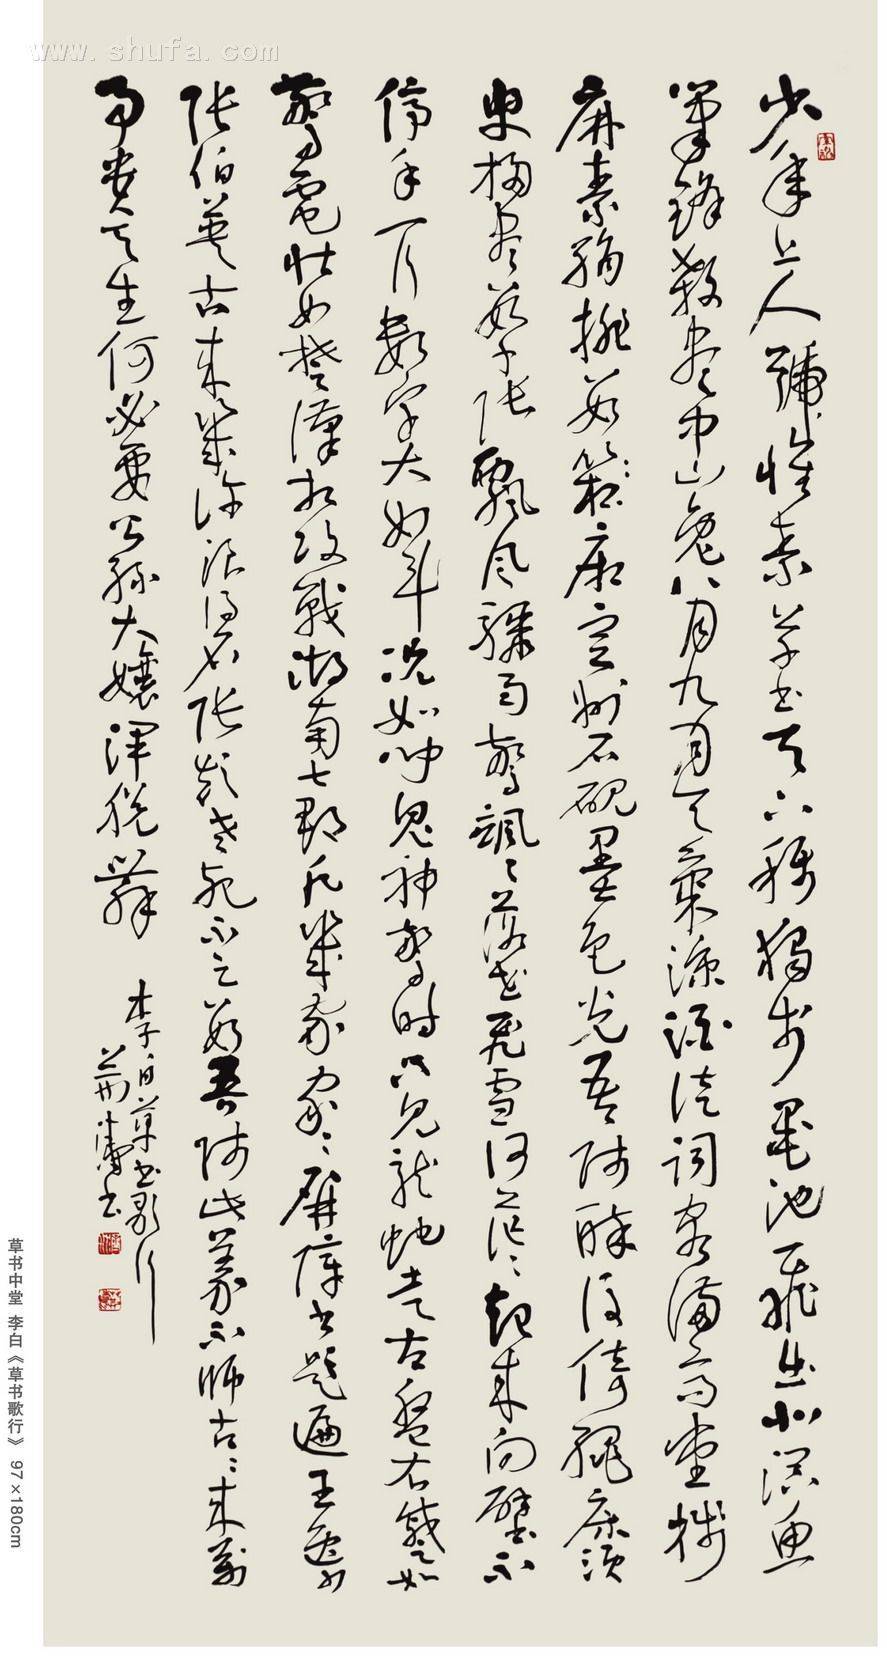 www.shufa.com
少年上人號懷素草書天下稱獨步墨池飛出北溟魚
筆鋒殺盡中山兔八月九月天氣涼酒徒詞客滿高堂牋
麻素絹排數箱宣州石硯墨色光吾師醉後倚繩床須
臾掃盡數千張飄風驟雨驚颯々落花飛雪何茫々起來向壁不
停手一行數字大如斗怳如聞鬼神驚時只見龍蛇走左盤右蹙如
驚電狀如楚漢相攻戰湖南七郡凡幾家家々屏障書題遍王逸少
張伯英古來幾許浪得名張顛老死不足數吾師此義不師古々來萬
事貴天生何必要公孫大娘渾脫舞
李白草書歌行
書
草书中堂 李白《草书歌行》 97×180cm